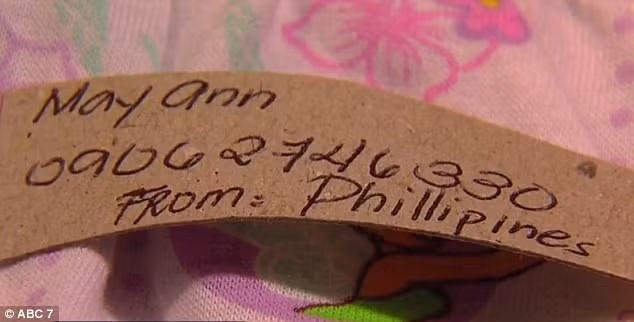 May Ann
09062746330
From: Phillipines
© ABC 7